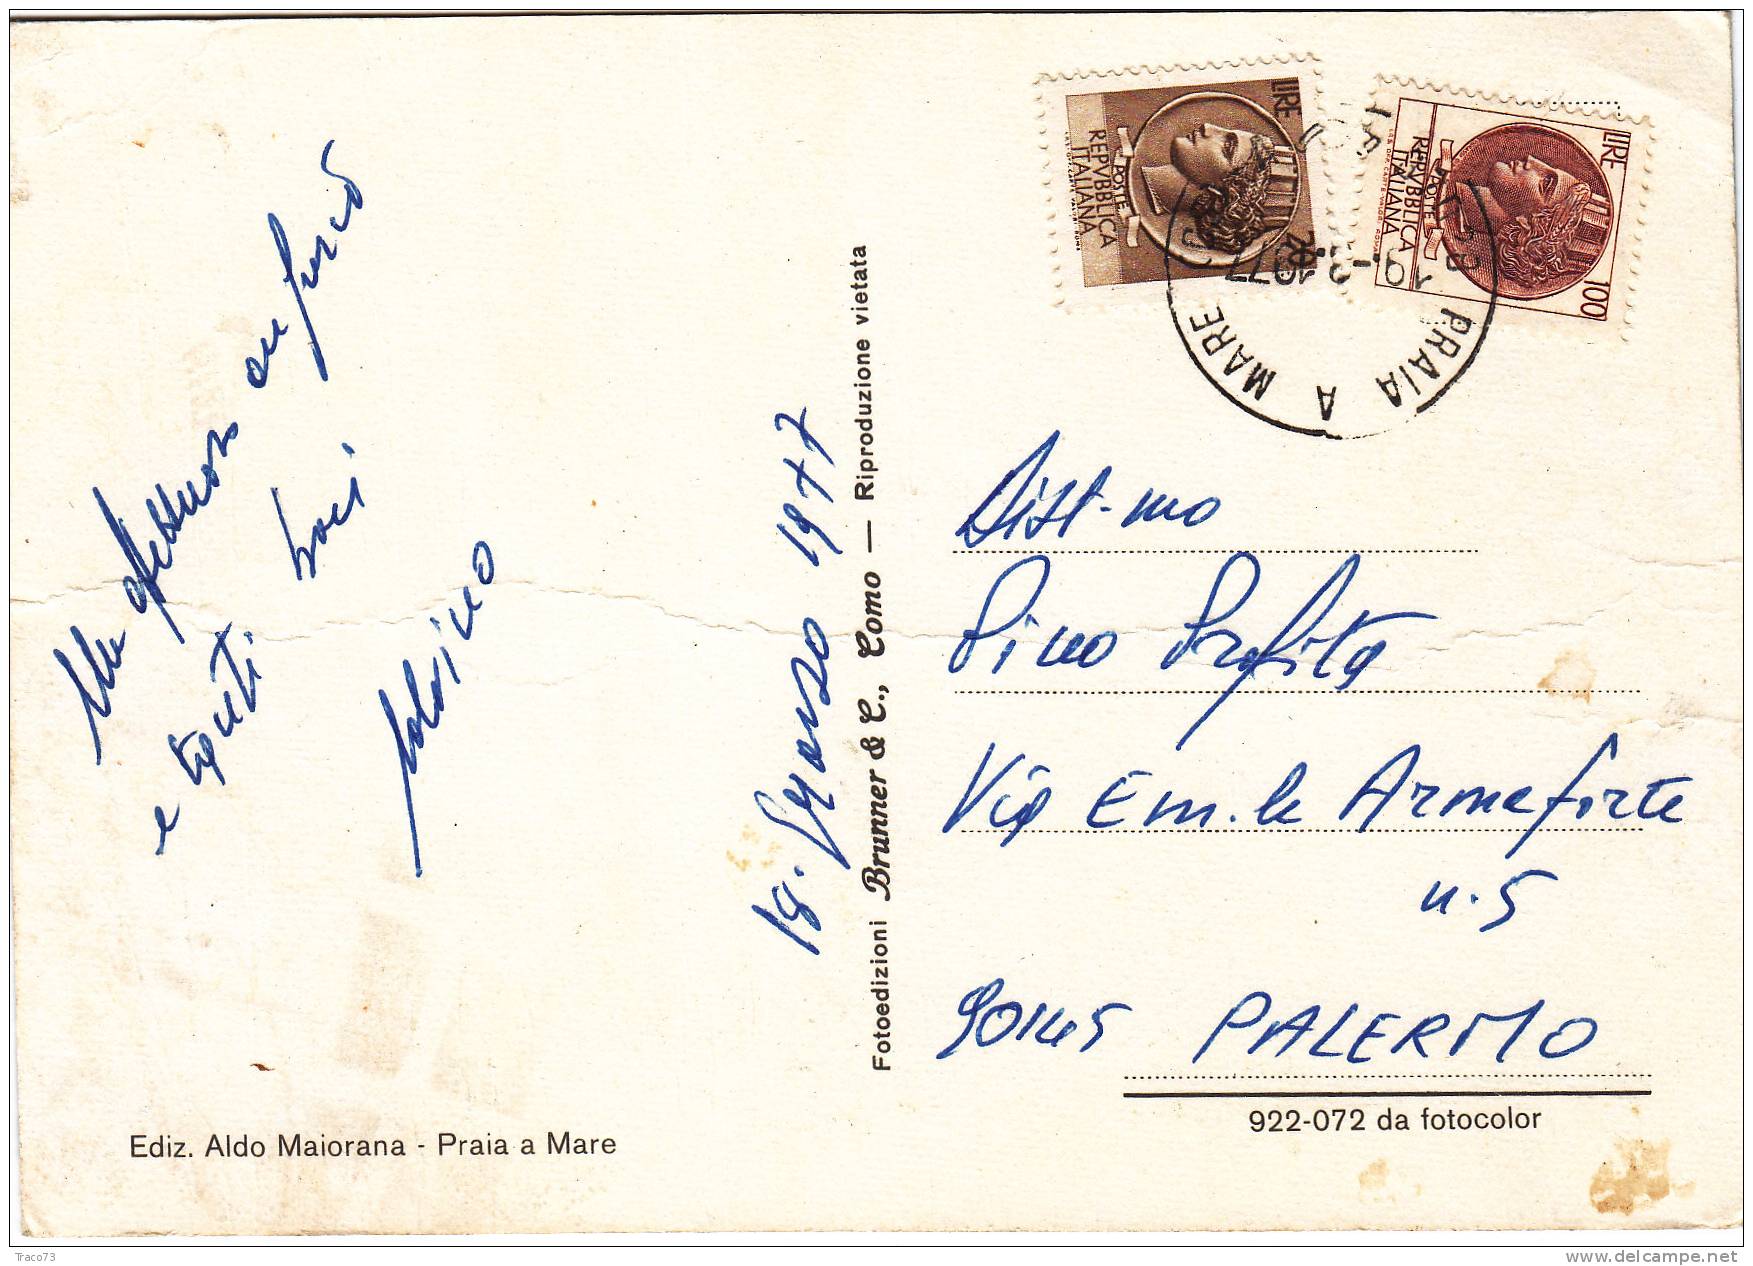 Un
e tanti baci
18. Marzo 1977
Fotoedizioni Brunner & C., Como — Riproduzione vietata
LIRE 70
POSTE
REPVBBLICA
ITALIANA
LIRE 100
POSTE
REPVBBLICA
ITALIANA
PRAIA A MARE
19-3-
1977
Dist-mo
Pino Profita
Via Em.le Armaforte
n. 5
90145 PALERMO
922-072 da fotocolor
Ediz. Aldo Maiorana - Praia a Mare
Traco73
delcampe.net